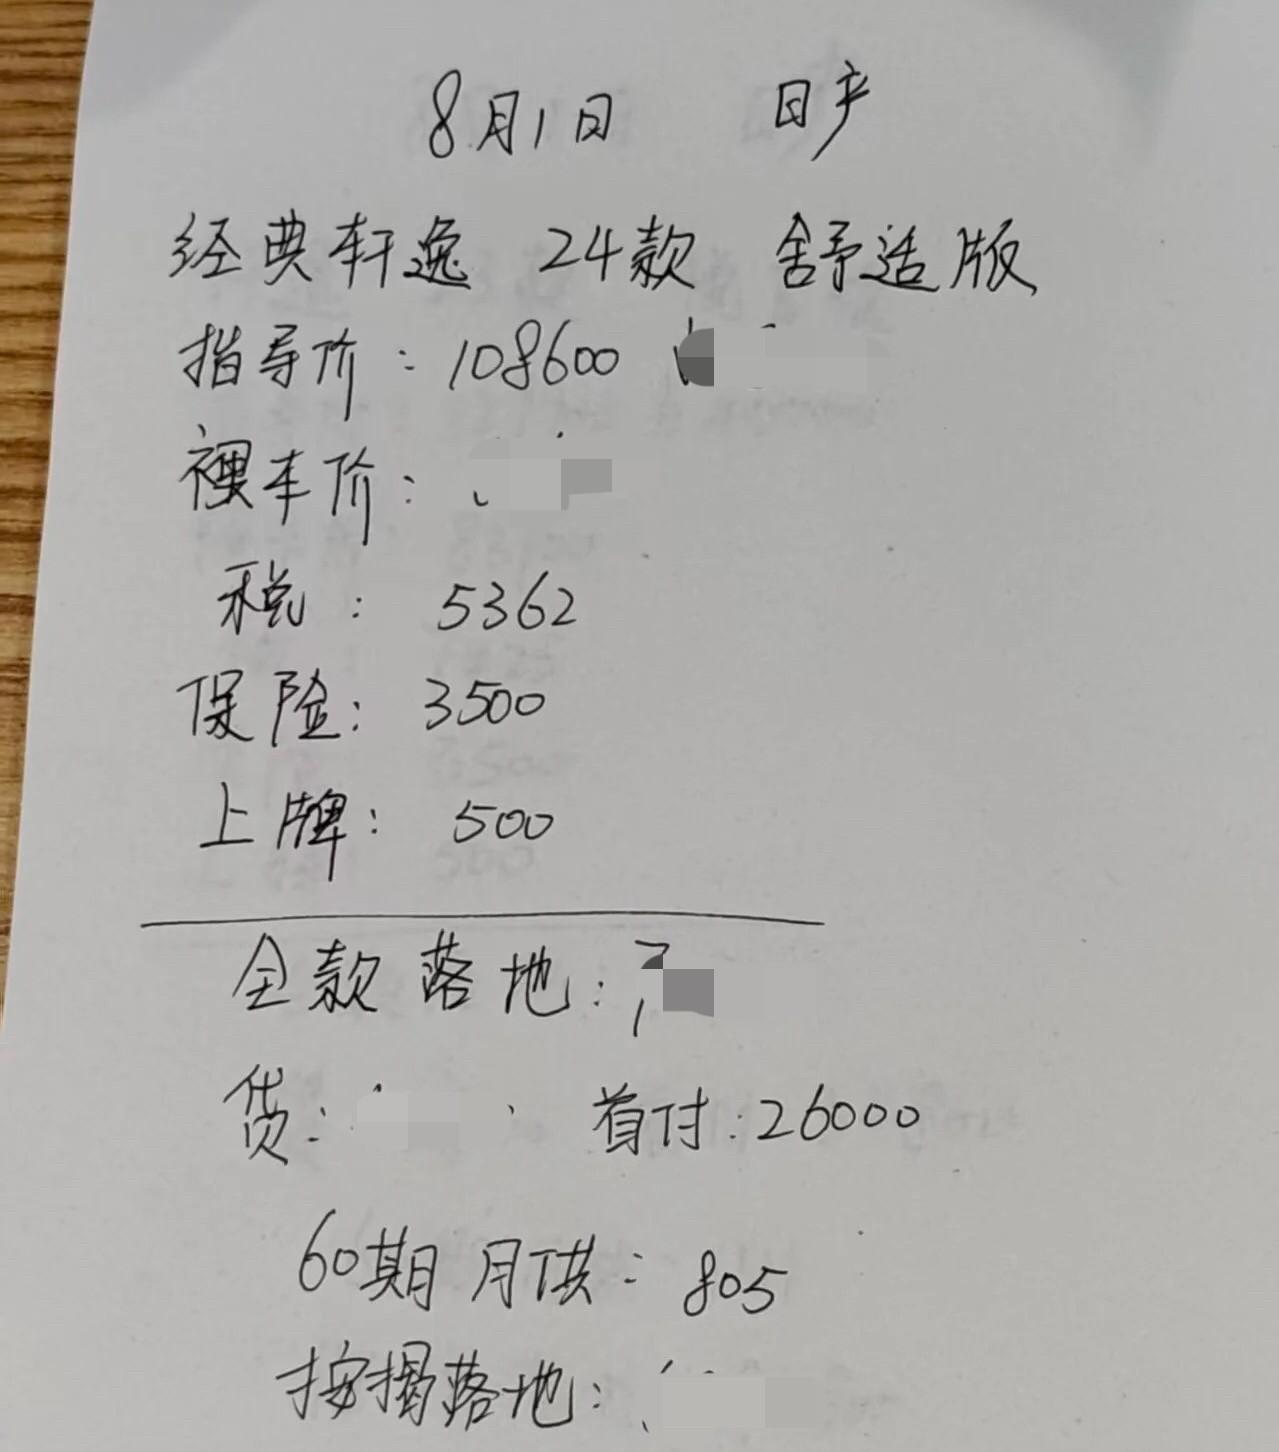 8月1日 日产
经典轩逸 24款 舒适版
指导价：108600
裸车价：
税：5362
保险：3500
上牌：500
全款落地：
贷： 首付：26000
60期月供：805
按揭落地：